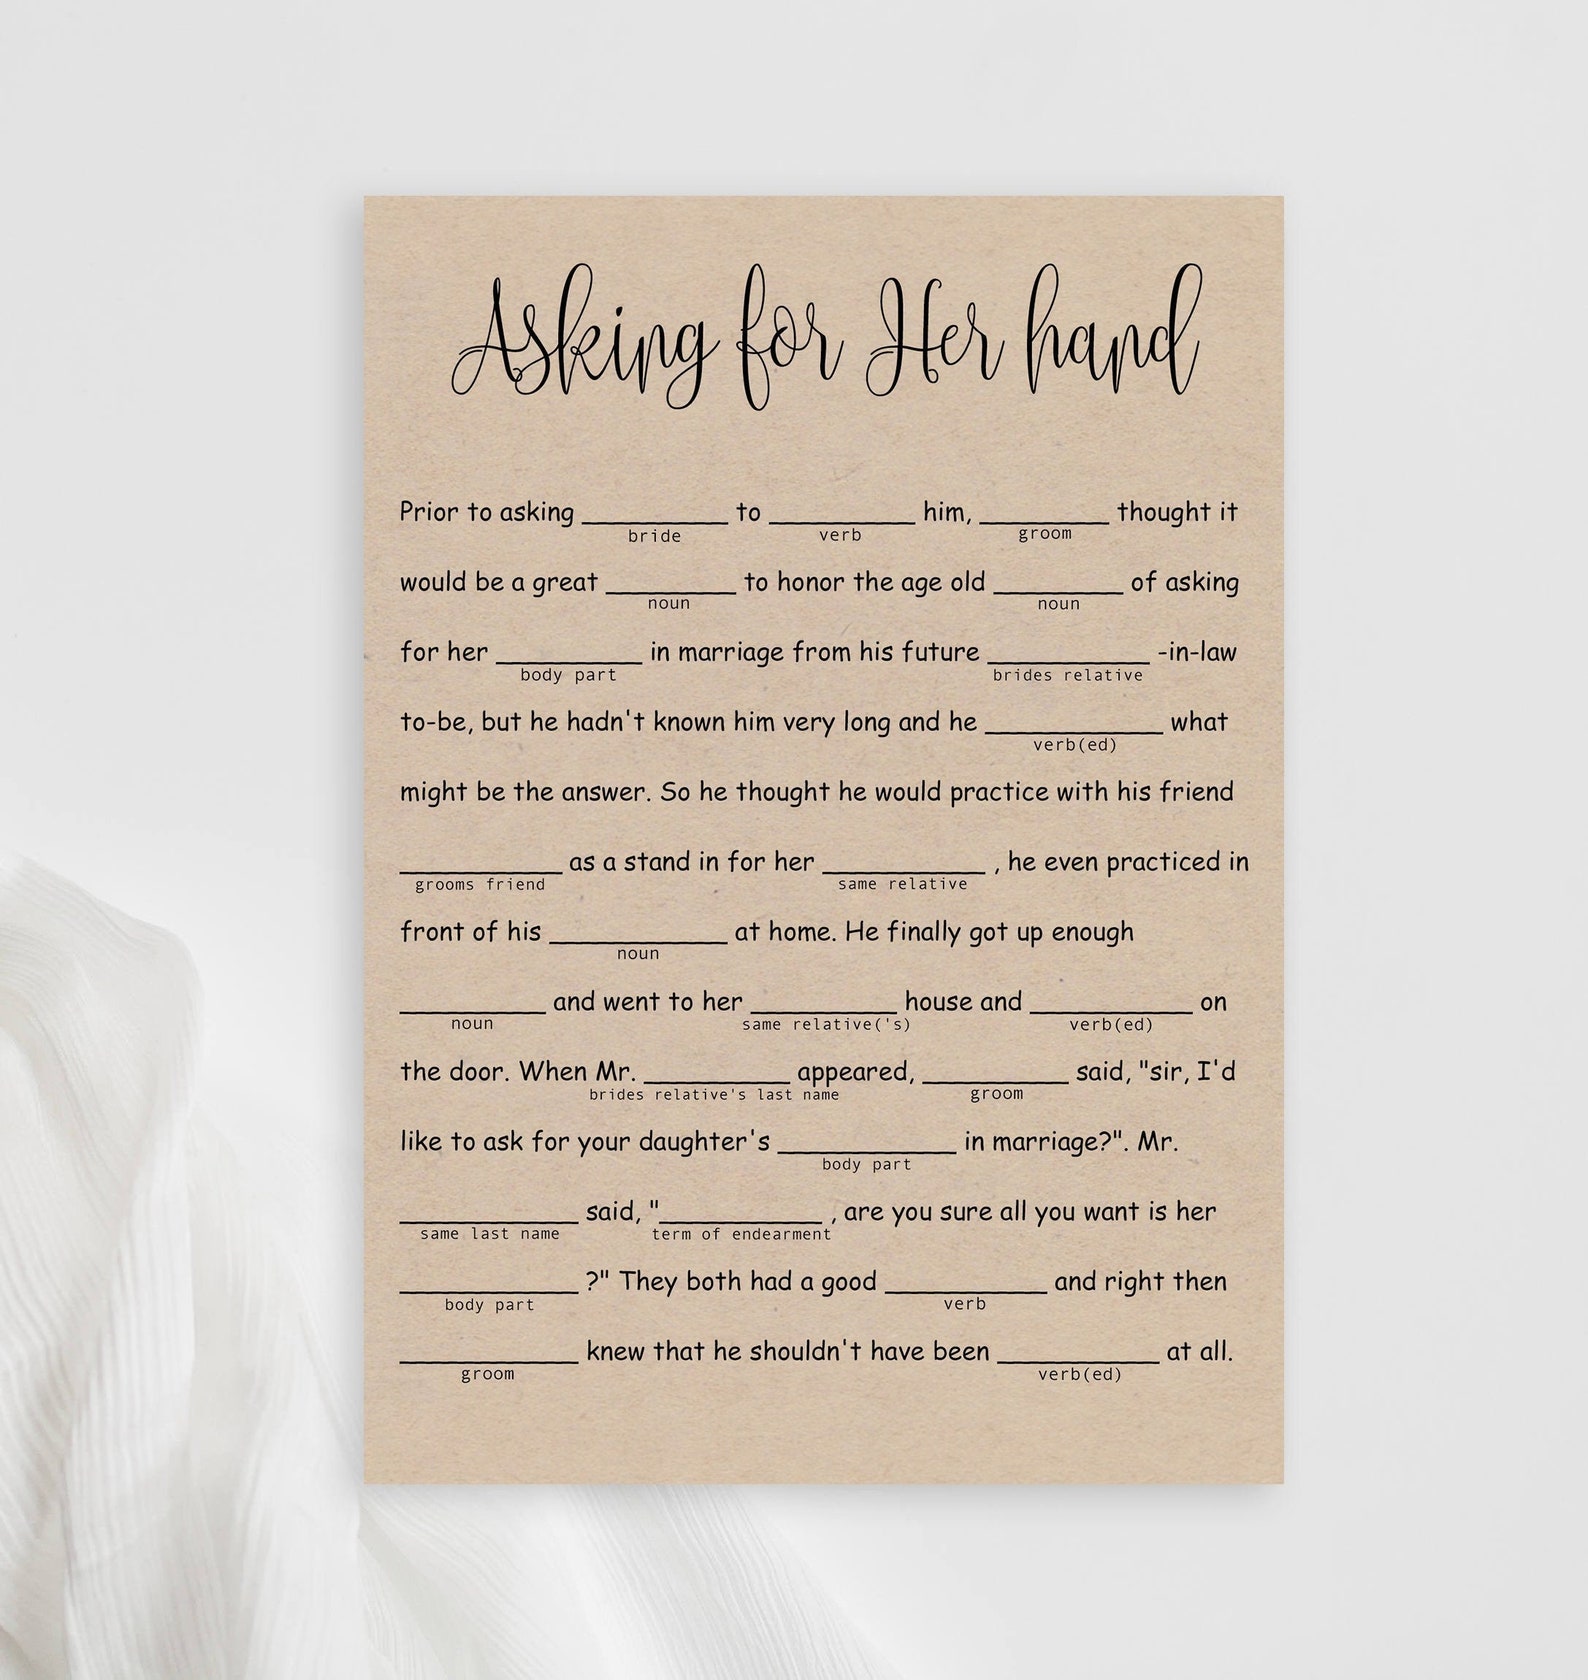 Asking for Her hand
Prior to asking __________ to __________ him, _________ thought it
bride verb groom
would be a great _________ to honor the age old _________ of asking
noun noun
for her __________ in marriage from his future ___________ -in-law
body part brides relative
to-be, but he hadn't known him very long and he ____________ what
verb(ed)
might be the answer. So he thought he would practice with his friend
___________ as a stand in for her ___________ , he even practiced in
grooms friend same relative
front of his ____________ at home. He finally got up enough
noun
__________ and went to her __________ house and ___________ on
noun same relative('s) verb(ed)
the door. When Mr. __________ appeared, __________ said, "sir, I'd
brides relative's last name groom
like to ask for your daughter's ____________ in marriage?". Mr.
body part
____________ said, "___________ , are you sure all you want is her
same last name term of endearment
____________ ?" They both had a good ___________ and right then
body part verb
____________ knew that he shouldn't have been ___________ at all.
groom verb(ed)